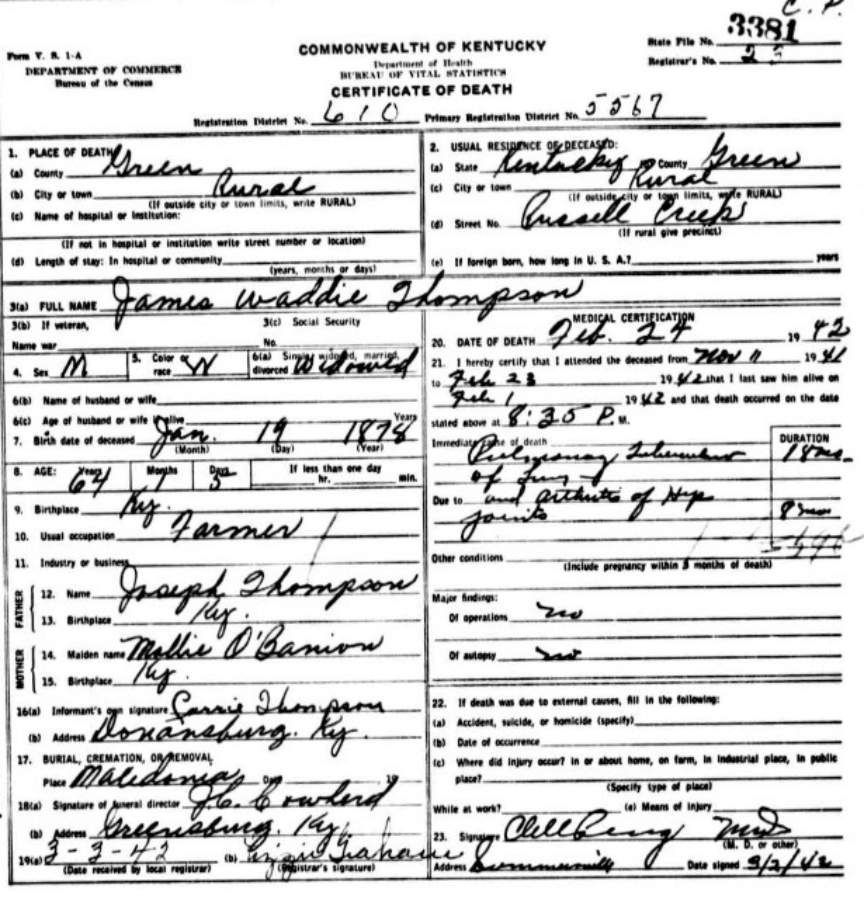 C. P.
Form V. S. 1-A
DEPARTMENT OF COMMERCE
Bureau of the Census
COMMONWEALTH OF KENTUCKY
Department of Health
BUREAU OF VITAL STATISTICS
CERTIFICATE OF DEATH
State File No. 3381
Registrar's No. 23
Registration District No. 610 Primary Registration District No. 5567
1. PLACE OF DEATH
(a) County Green
(b) City or town Rural
(If outside city or town limits, write RURAL)
(c) Name of hospital or institution:
(If not in hospital or institution write street number or location)
(d) Length of stay: In hospital or community
(years, months or days)
2. USUAL RESIDENCE OF DECEASED:
(a) State Kentucky County Green
(c) City or town Rural
(If outside city or town limits, write RURAL)
(d) Street No. Russell Creek
(If rural give precinct)
(e) If foreign born, how long in U. S. A.? years
3(a) FULL NAME James Waddie Thompson
3(b) If veteran, 3(c) Social Security
Name war No.
4. Sex M 5. Color or race W 6(a) Single, widowed, married, divorced Widowed
6(b) Name of husband or wife
6(c) Age of husband or wife if alive Years
7. Birth date of deceased Jan. 19 1878
(Month) (Day) (Year)
8. AGE: Years 64 Months 1 Days 5 If less than one day hr. min.
9. Birthplace Ky.
10. Usual occupation Farmer
11. Industry or business
FATHER
12. Name Joseph Thompson
13. Birthplace Ky.
MOTHER
14. Maiden name Mollie O'Banion
15. Birthplace Ky.
16(a) Informant's own signature Carrie Thompson
(b) Address Donansburg. Ky.
17. BURIAL, CREMATION, OR REMOVAL
Place Macedonia 19
18(a) Signature of funeral director J.C. Cowherd
(b) Address Greensburg. Ky.
19(a) 3-3-42 (b) Lizzie Graham
(Date received by local registrar) (Registrar's signature)
MEDICAL CERTIFICATION
20. DATE OF DEATH Feb. 24 1942
21. I hereby certify that I attended the deceased from Nov 11 1941
to Feb 23 1942 that I last saw him alive on
Feb 1 1942 and that death occurred on the date
stated above at 8:35 P. M.
Immediate cause of death DURATION
Pulmonary Tuberculosis 18 mo.
of Lung
Due to and arthritis of Hip
joints 8 mos
Other conditions
(Include pregnancy within 3 months of death)
Major findings:
Of operations no
Of autopsy no
22. If death was due to external causes, fill in the following:
(a) Accident, suicide, or homicide (specify)
(b) Date of occurrence
(c) Where did injury occur? in or about home, on farm, in industrial place, in public
place?
(Specify type of place)
While at work? (e) Means of injury
23. Signature M.D.
(M. D. or other)
Address Summersville Date signed 3/2/42